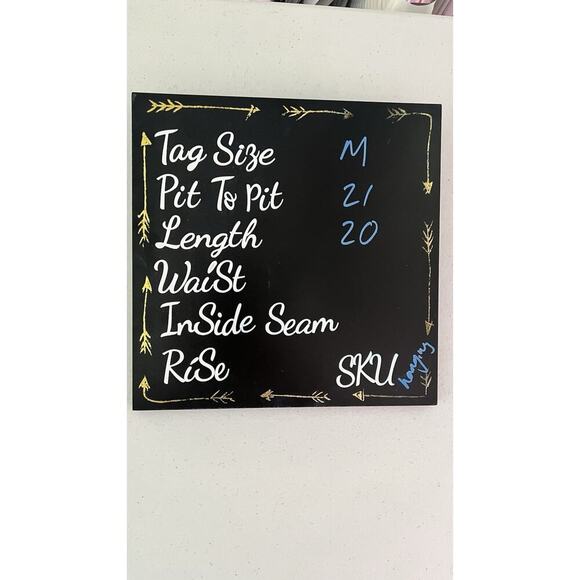 Tag Size M
Pit To Pit 21
Length 20
Waist
InSide Seam
RiSe SKU hanging